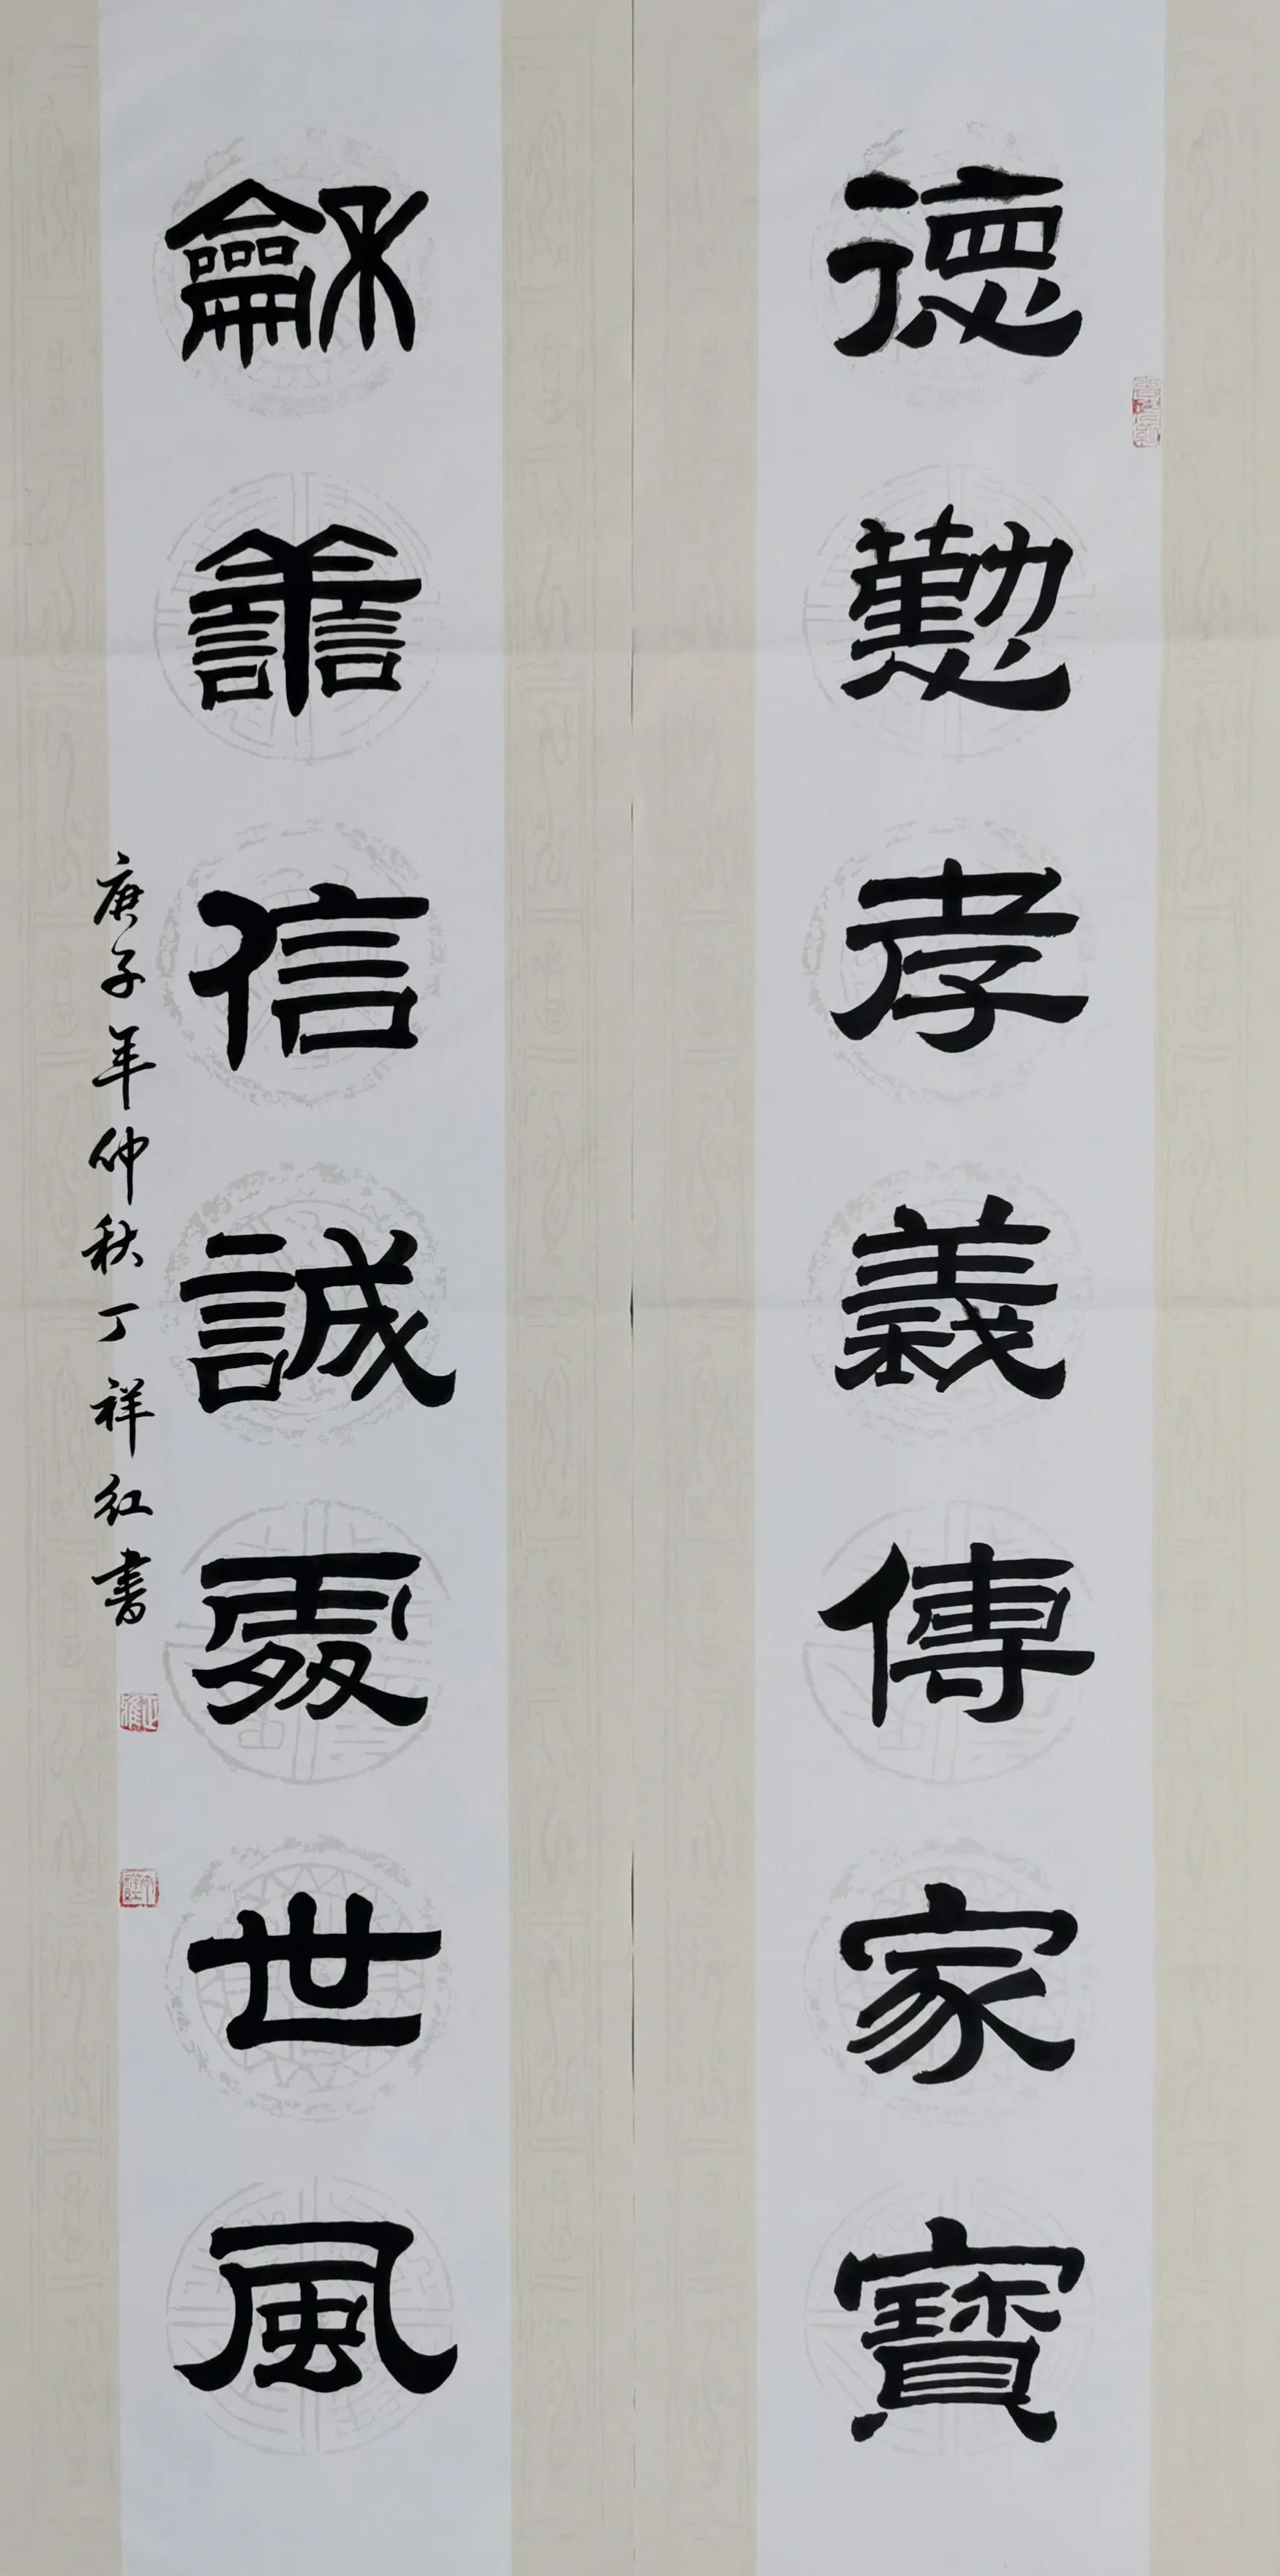 德懃孝義傳家寶
龢譱信誠處世風
庚子年仲秋丁祥红書